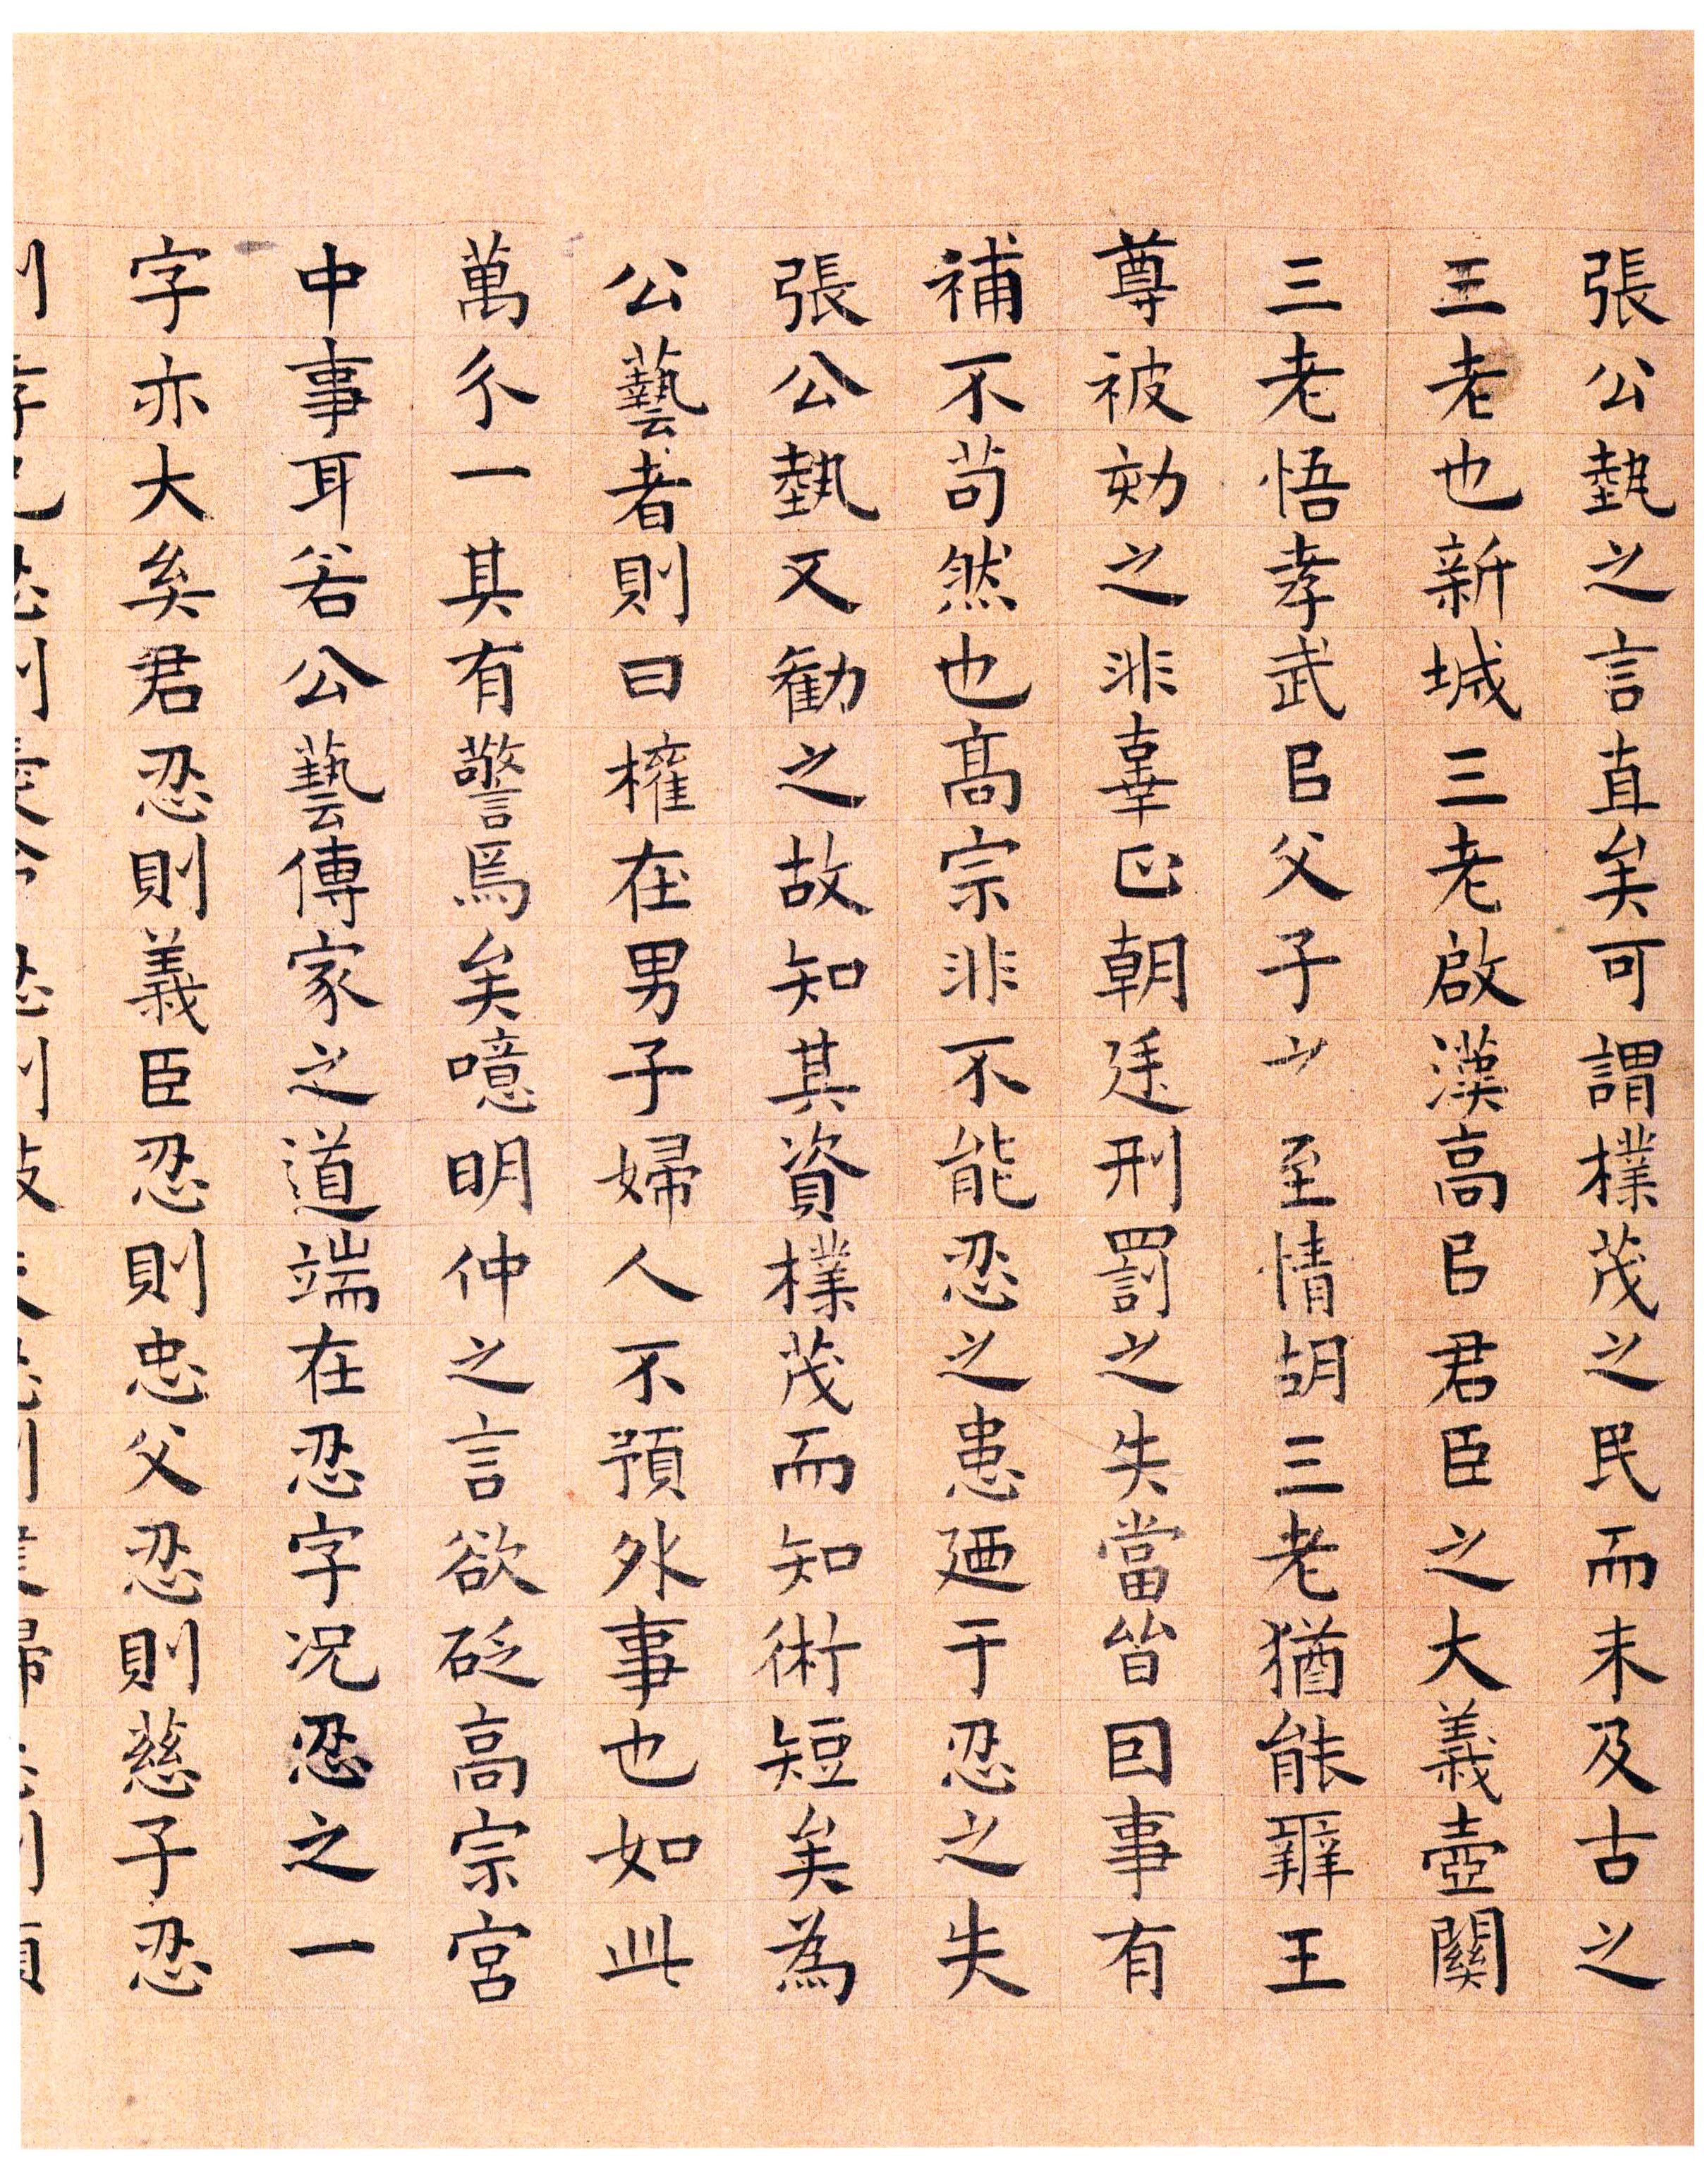 張公埶之言直矣可謂樸茂之民而未及古之
三老也新城三老啟漢高㠯君臣之大義壺關
三老悟孝武㠯父子之至情胡三老猶能辨王
尊被劾之非辜正朝廷刑罰之失當皆囙事有
補不苟然也髙宗非不能忍之患迺于忍之失
張公埶又勸之故知其資樸茂而知術短矣為
公藝者則曰權在男子婦人不預外事也如此
萬分一其有警焉矣噫明仲之言欲砭高宗宮
中事耳若公藝傳家之道端在忍字况忍之一
字亦大矣君忍則義臣忍則忠父忍則慈子忍